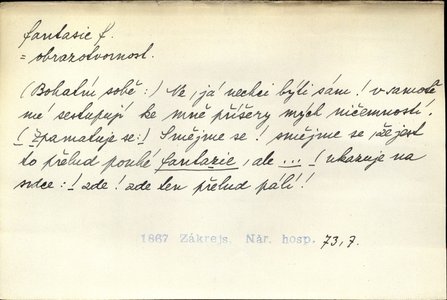 fantasie f.
= obrazotvornost.
(Bohatní sobě:) Ne, já nechci býti sám! v samotě
mé sestupují ke mně příšery mých ničemností.
(Zpamatuje se:) Smějme se! smějme se, že jest
to přelud pouhé fantazie, ale ... (ukazuje na
srdce:) zde! zde ten přelud pálí!
1867 Zákrejs, Nár. hosp. 73, 7.